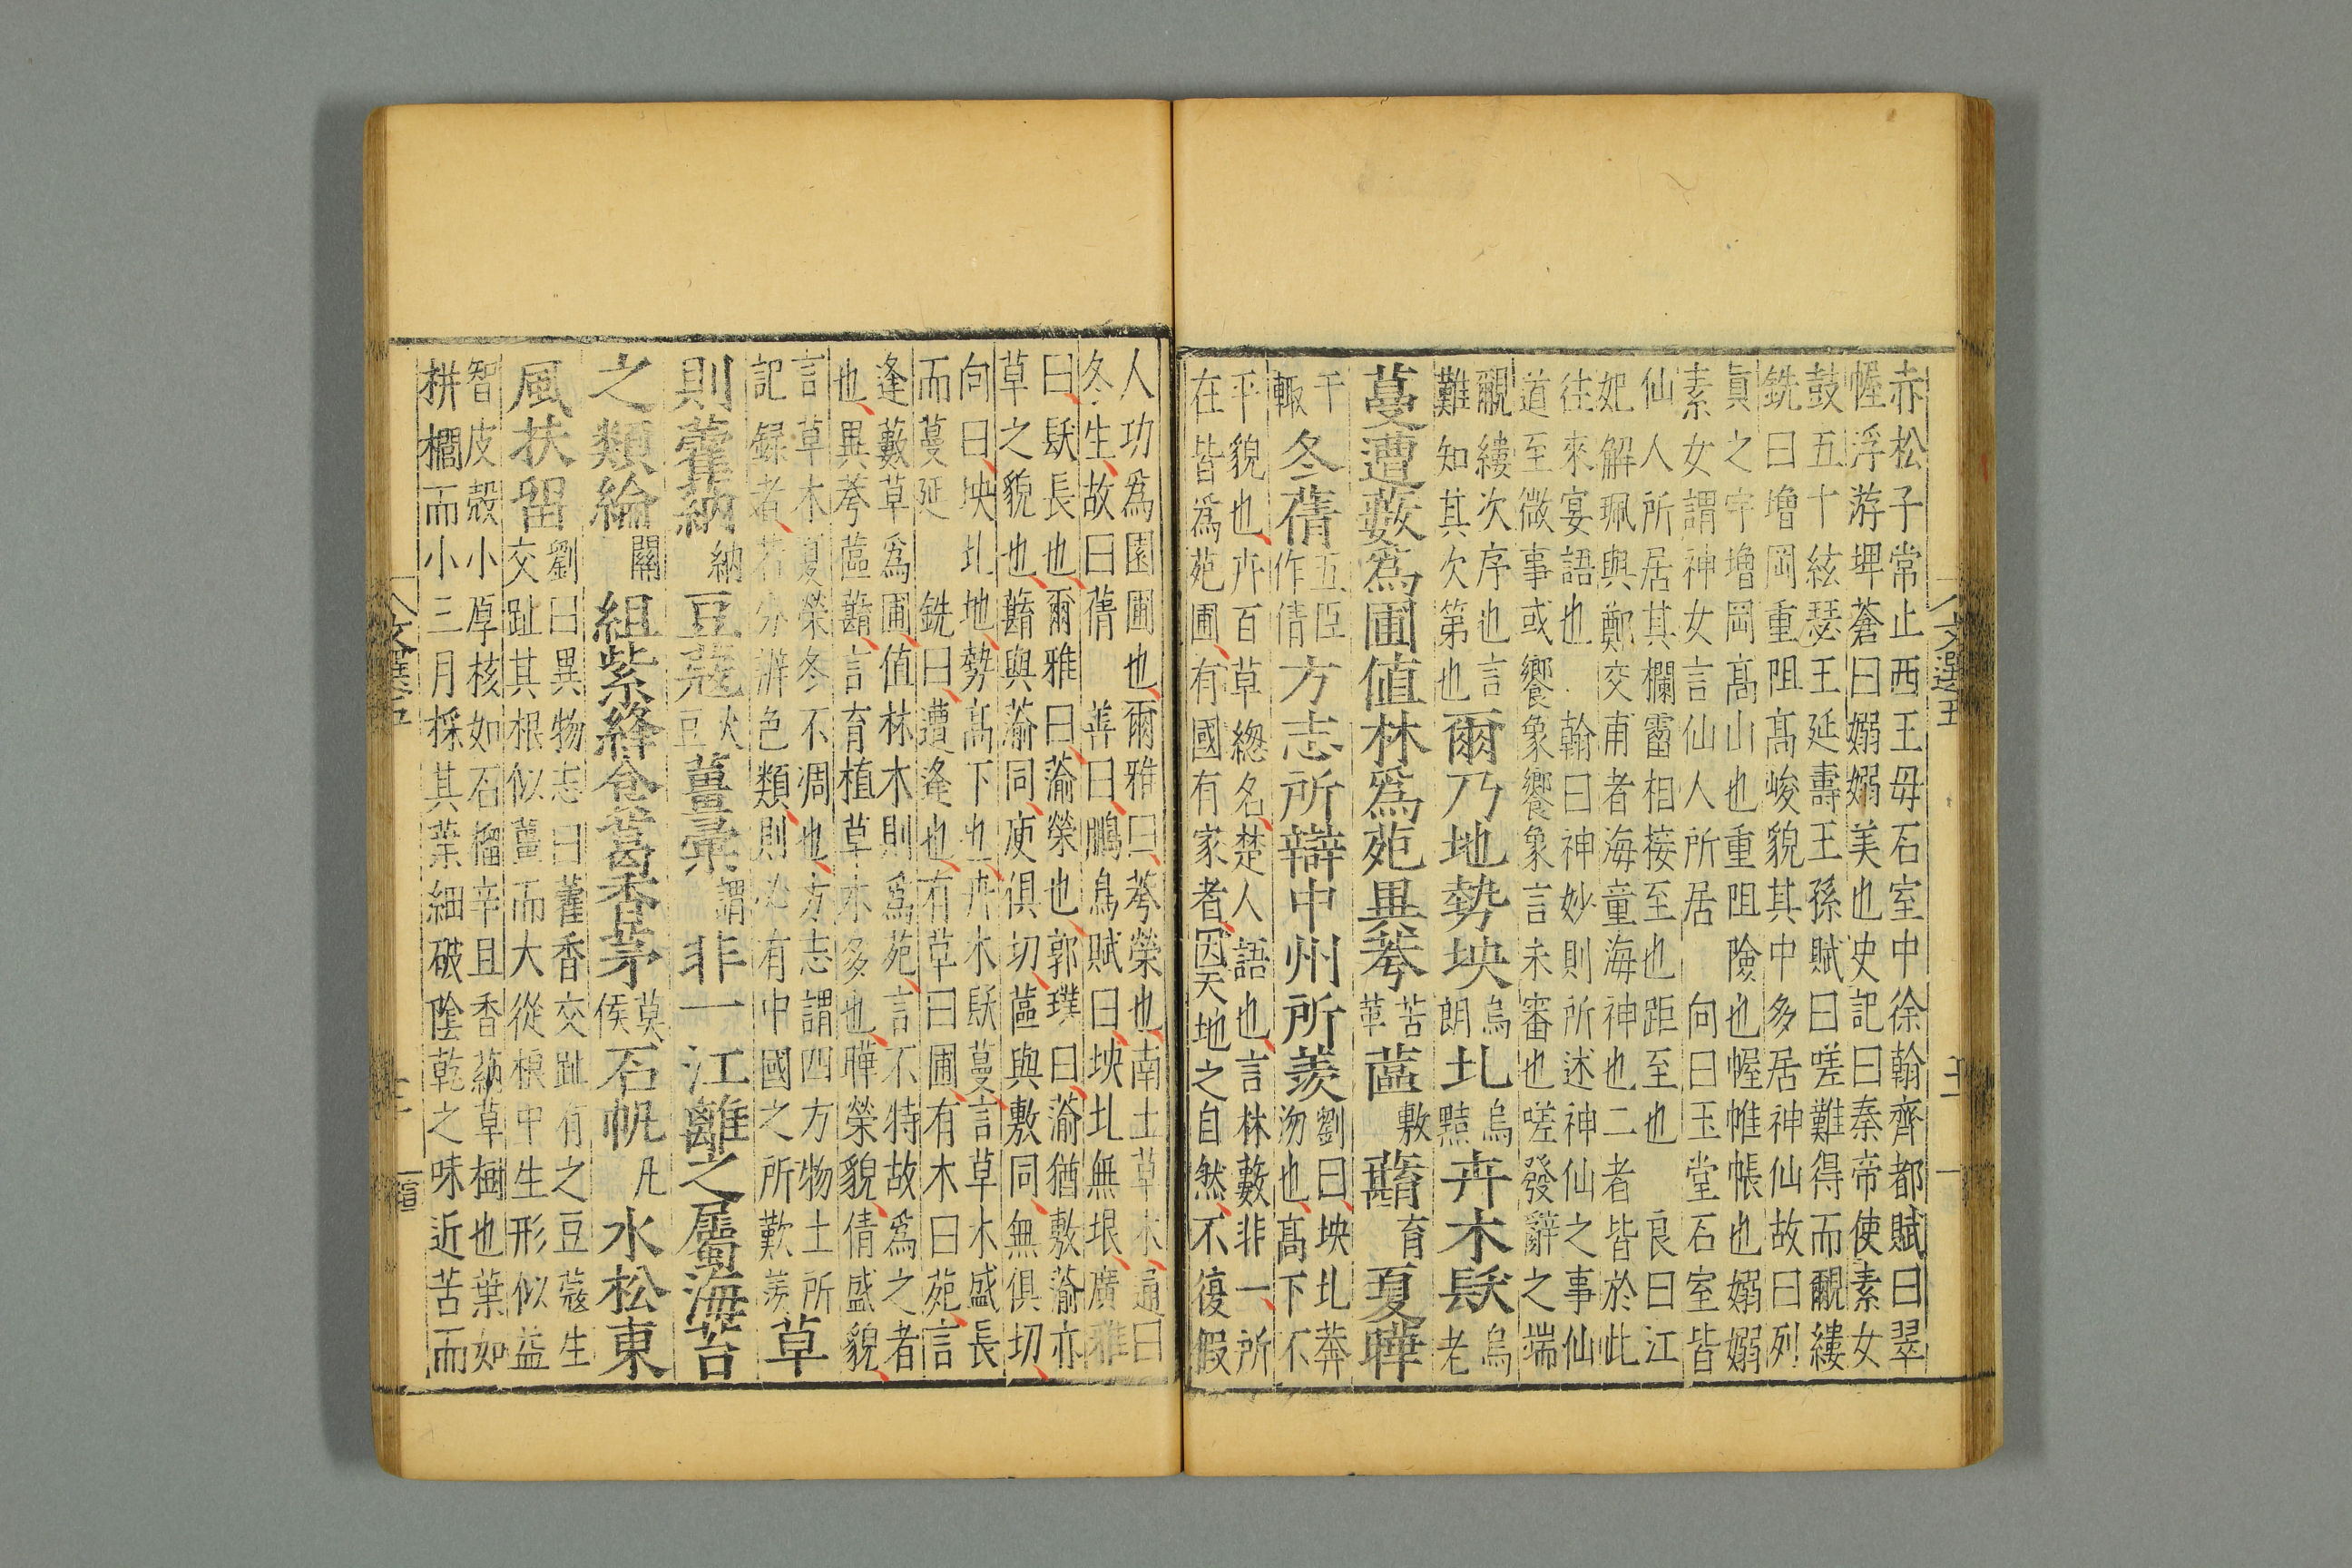 赤松子常止西王母石室中徐翰齊都賦曰翠
幄浮游埤蒼曰嫋嫋美也史記曰秦帝使素女
鼓五十絃瑟王延壽王孫賦曰嗟難得而覼縷
銑曰増岡重阻髙峻貌其中多居神仙故曰列
眞之宇増岡髙山也重阻險也幄帷帳也嫋嫋
素女謂神女言仙人所居 向曰玉堂石室皆
仙人所居其欄霤相接至也距至也 良曰江
妃解珮與鄭交甫者海童海神也二者皆於此
往來宴語也 翰曰神妙則所述神仙之事仙
道至微事或饗象饗象言未審也嗟發辭之端
覼縷次序也言
難知其次第也
爾乃地勢坱烏朗圠烏黠卉木镺烏老
蔓遭薮爲圃值林爲苑異荂苦華蓲敷蘛育夏曄
干輙冬蒨五臣作倩方志所辯中州所羨
劉曰坱圠莽
沕也髙下不
平貌也卉百草緫名楚人語也言林藪非一所
在皆爲苑圃有國有家者因天地之自然不復假
文選五
十一
人功爲園圃也爾雅曰荂榮也南土草木通曰
冬生故曰蒨 善曰鵩鳥賦曰坱圠無垠廣雅
曰镺長也爾雅曰蕍榮也郭璞曰蕍猶敷蕍亦
草之貌也蘛與蕍同庾俱切蓲與敷同無俱切
向曰坱圠地勢髙下也卉木镺蔓言草木盛長
而蔓延 銑曰遭逢也有草曰圃有木曰苑言
逢藪草爲圃值林木則爲苑言不特故爲之者
也異荂蓲蘛言育植草木多也曄榮貌倩盛貌
言草木夏榮冬不凋也方志謂四方物土所
記録者若分辨色類則必有中國之所歎羨
草
則藿蒳納豆蔻火豆薑彙謂非一江蘺之屬海苔
之類綸關組紫絳食葛香茅莫侯石帆凡水松東
風扶留
劉曰異物志曰藿香交趾有之豆蔻生
交趾其根似薑而大從根中生形似益
智皮殻小厚核如石榴辛且香蒳草樹也葉如
栟櫚而小三月採其葉細破陰乾之味近苦而